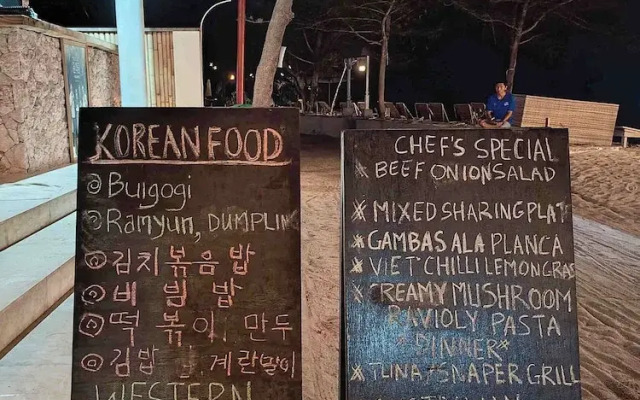 KOREAN FOOD
Bulgogi
Ramyun, DUMPLIN
김치 볶음밥
비빔밥
떡볶이, 만두
김밥, 계란말이
WESTERN
CHEF'S SPECIAL
BEEF ONION SALAD
MIXED SHARING PLAT
GAMBAS ALA PLANCA
VIET' CHILLI LEMONGRAS
CREAMY MUSHROOM
RAVIOLY PASTA
*DINNER*
TUNA/SNAPER GRILL